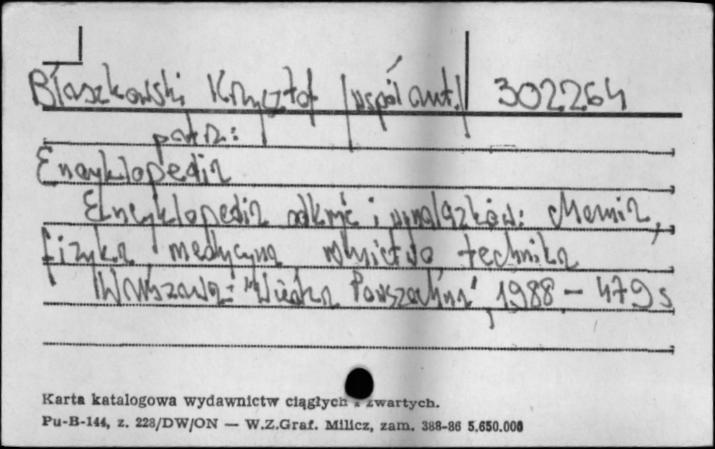 Błaszkowski Krzysztof /współaut./ 302264
patrz:
Encyklopedia
Encyklopedia odkryć i wynalazków: chemia,
fizyka medycyna rolnictwo technika
Warszawa: "Wiedza Powszechna", 1988 - 479 s
Karta katalogowa wydawnictw ciągłych i zwartych.
Pu-B-144, z. 228/DW/ON — W.Z.Graf. Milicz, zam. 388-86 5.650.000